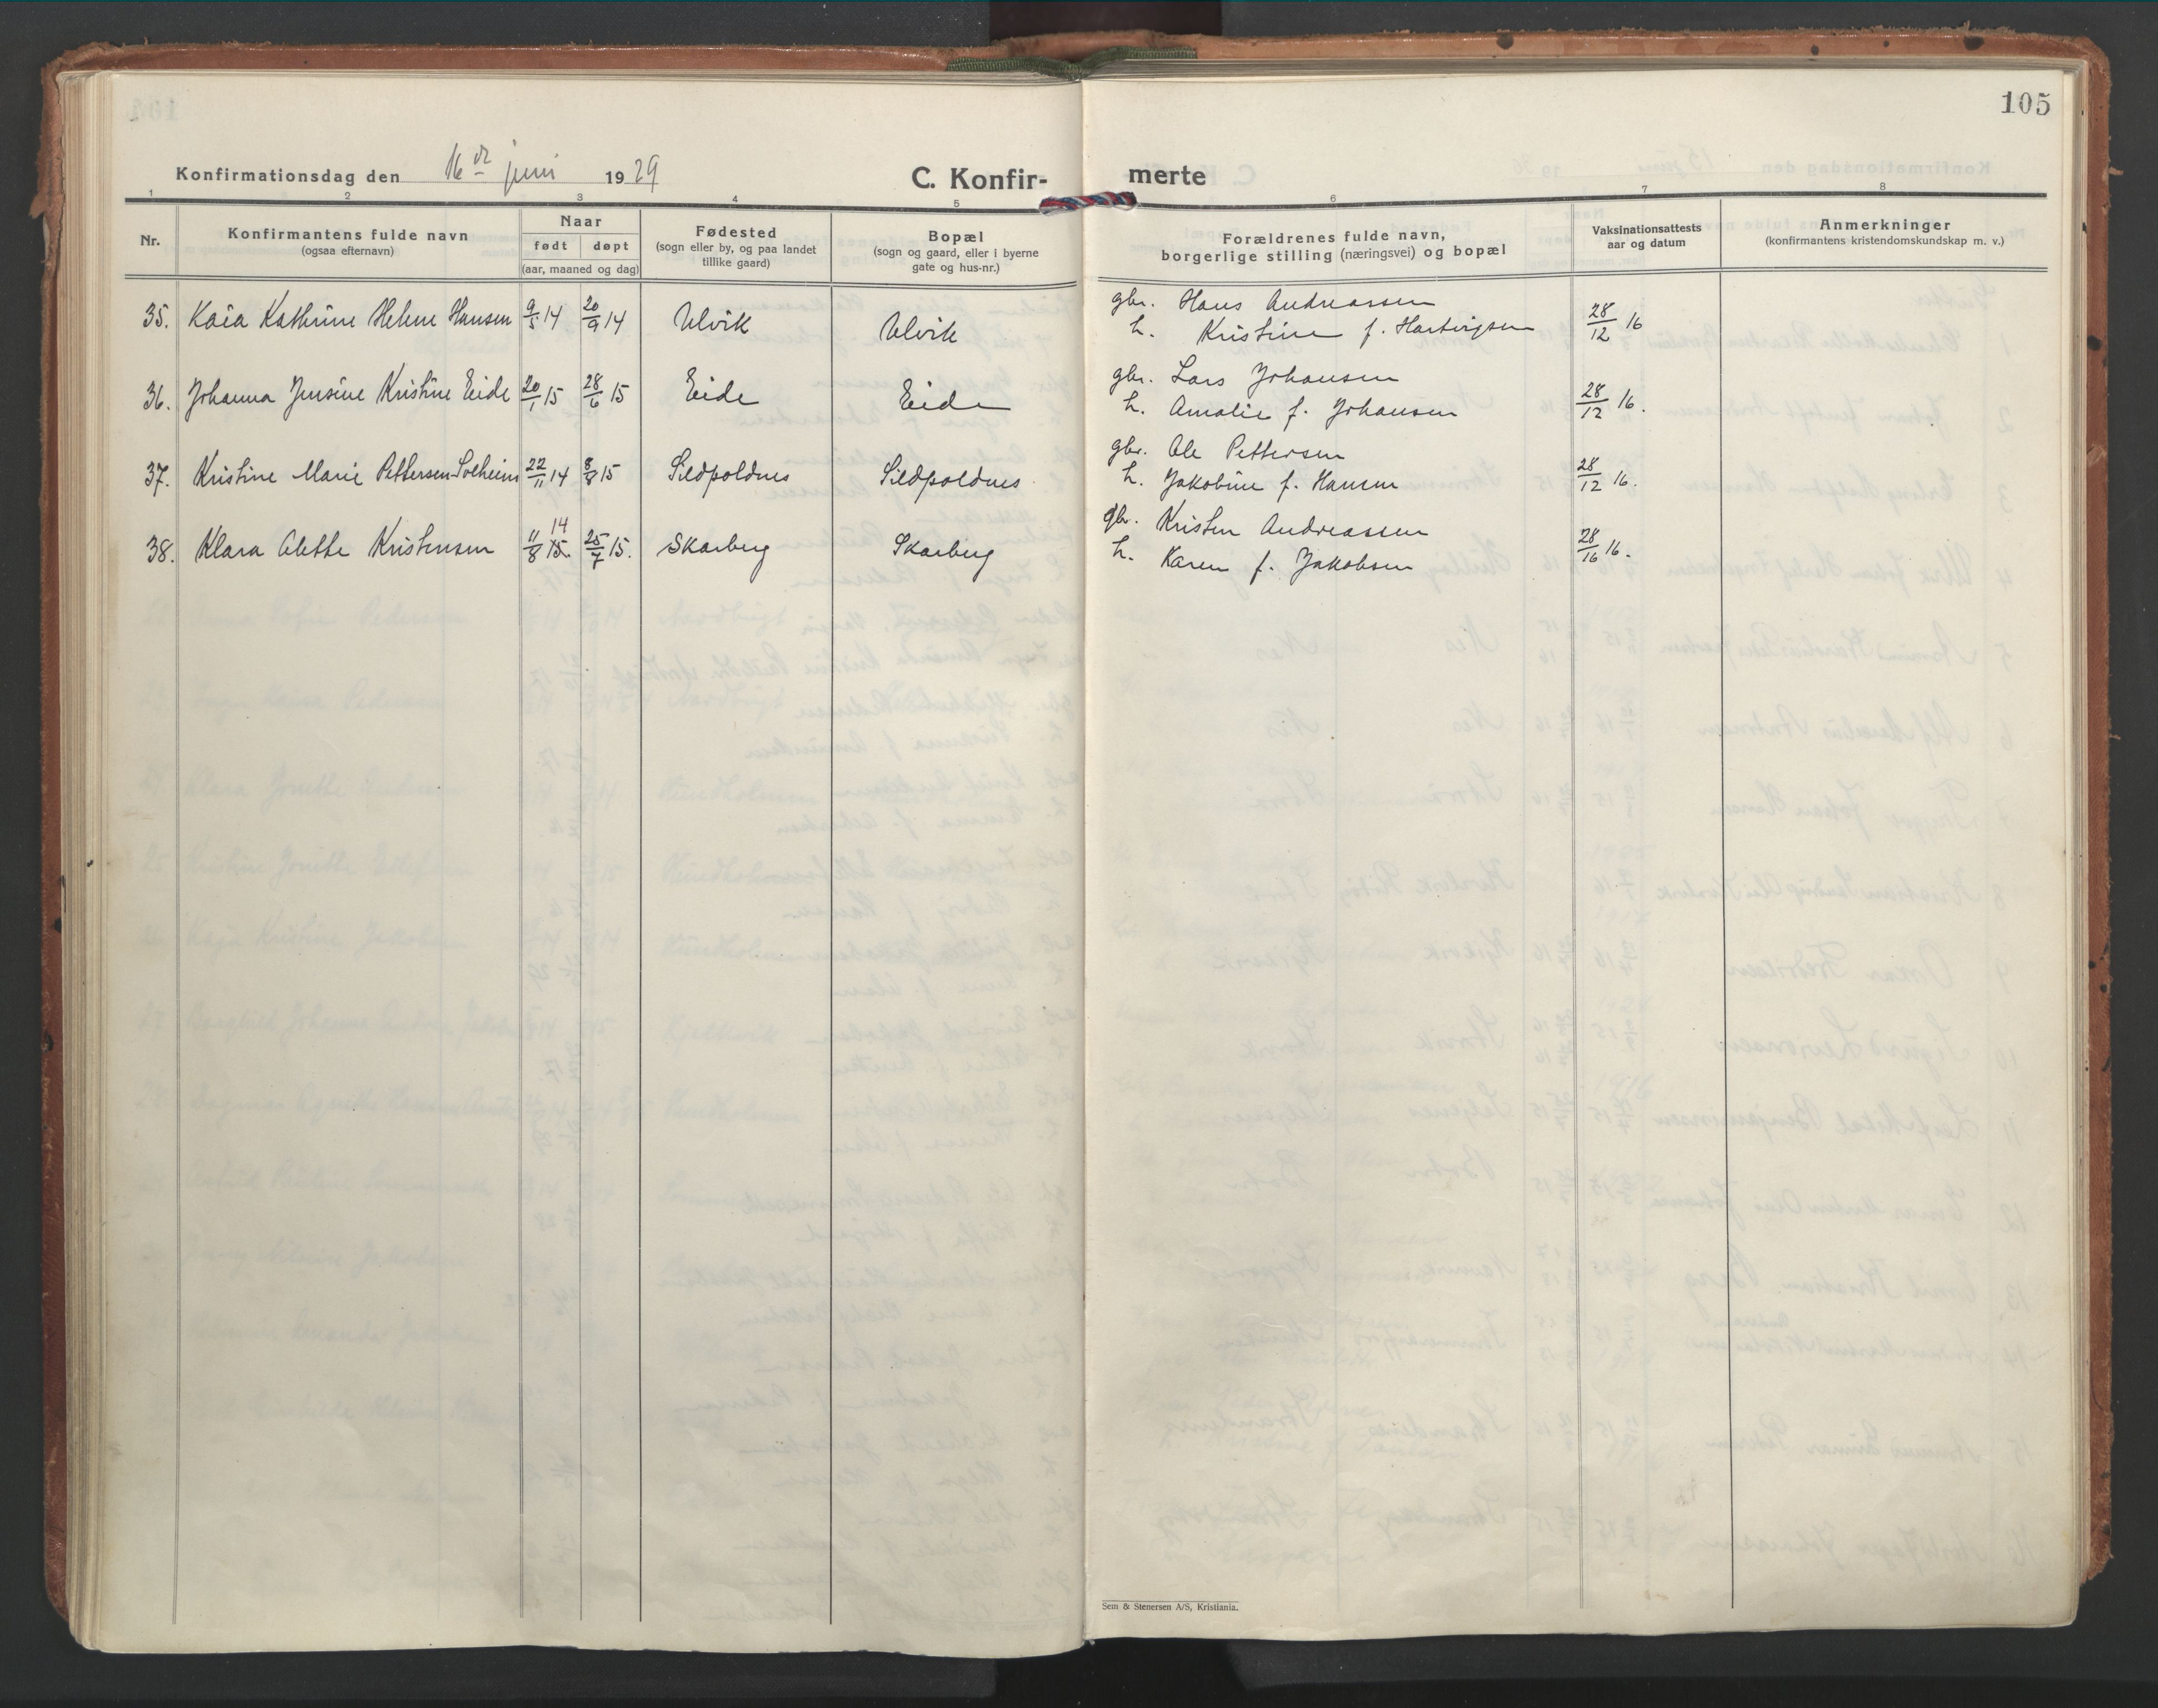 105
Konfirmationsdag den 16de juni 1929
C. Konfir- merte
1 2 3 4 5 6 7 8
Nr.
Konfirmantens fulde navn
(ogsaa efternavn)
Naar
født døpt
(aar, maaned og dag)
Fødested
(sogn eller by, og paa landet
tillike gaard)
Bopæl
(sogn og gaard, eller i byerne
gate og hus-nr.)
Forældrenes fulde navn,
borgerlige stilling (næringsvei) og bopæl
Vaksinationsattests
aar og datum
Anmerkninger
(konfirmantens kristendomskundskap m. v.)
35. Kaia Kathrine Helene Hansen 9/5 14 20/9 14 Ulvik Ulvik gbr. Hans Andreassen
h. Kristine f. Hartvigsen 28/12 16
36. Johanna Jensine Kristine Eide 20/1 15 28/6 15 Eide Eide gbr. Lars Johansen
h. Amalie f. Johansen 28/12 16.
37. Kristine Marie Pettersen-Solheim 22/11 14 8/8 15 Sildpoldnes Sildpoldnes gbr. Ole Pettersen
h. Jakobine f. Hansen 28/12 16.
38. Klara Alette Kristensen 11/8 15. 14 25/7 15. Skarberg Skarberg gbr. Kristen Andreassen
h. Karen f. Jakobsen 28/16 16.
Sem & Stenersen A/S, Kristiania.